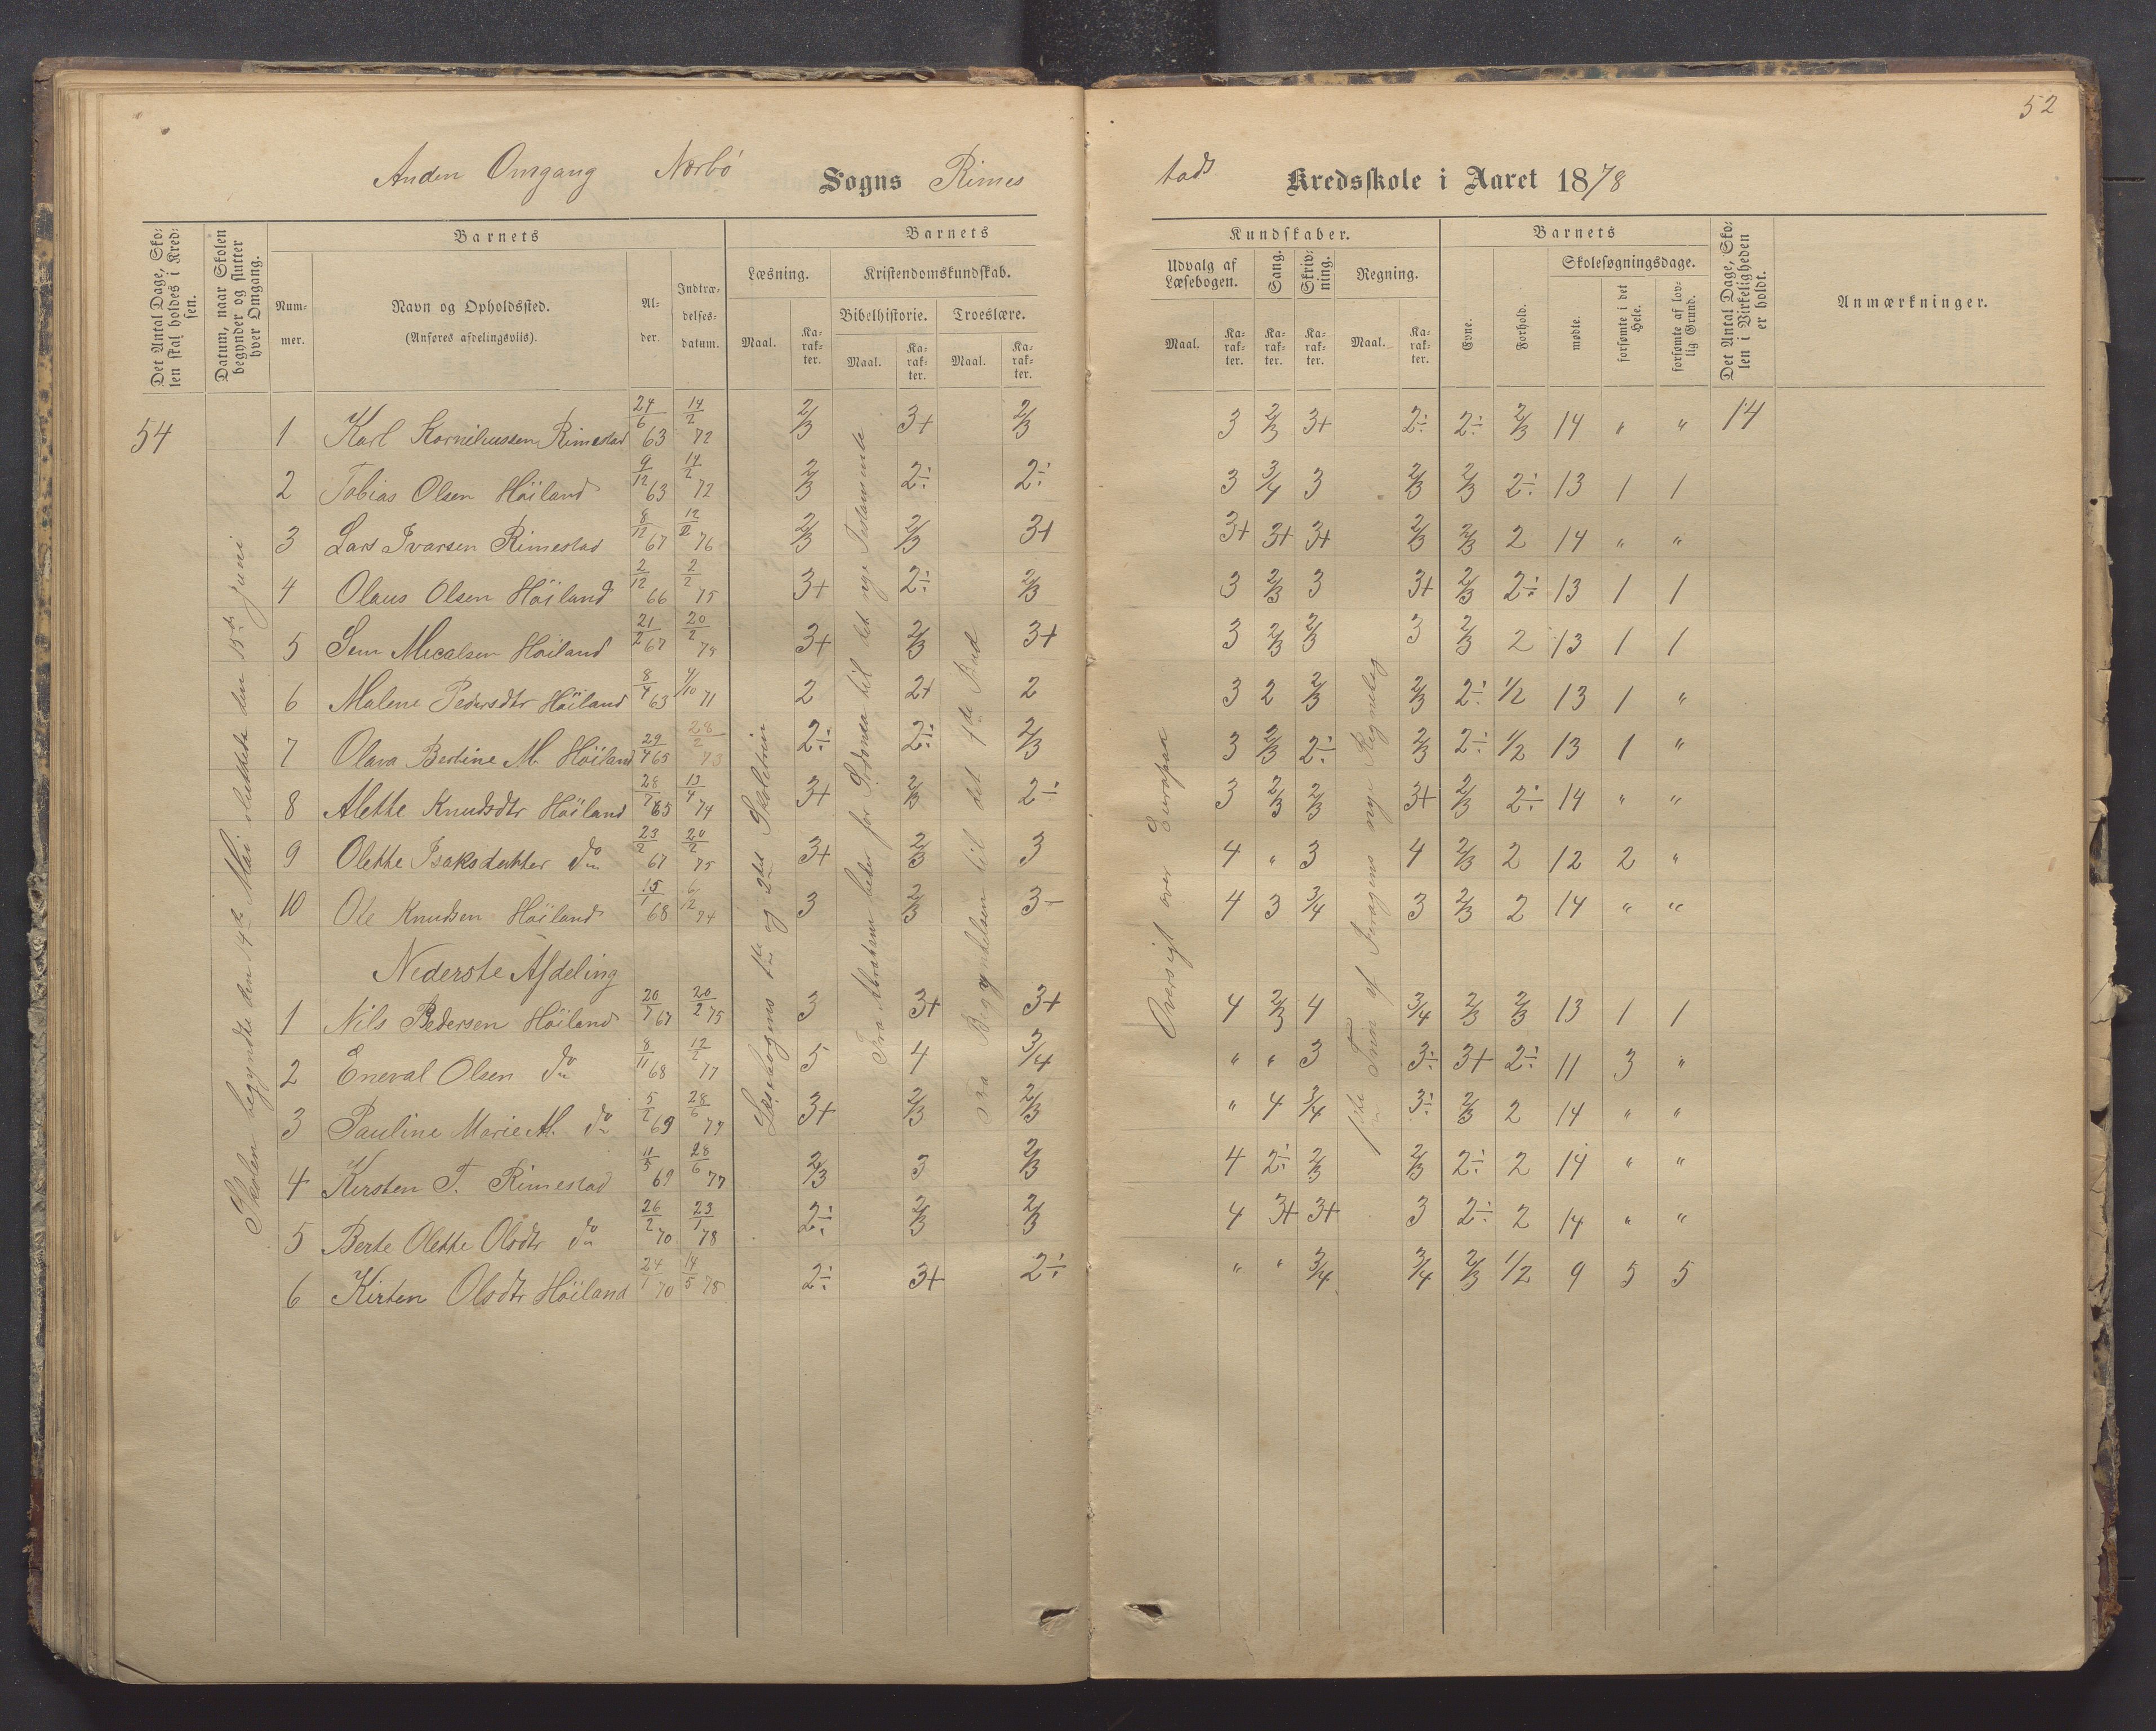 52
Anden Omgang Nærbø Sogns Rimes
tads Kredsskole i Aaret 1878
Det Antal Dage, Skolen skal holdes i Kredsen.
Datum, naar Skolen begynder og slutter hver Omgang.
Barnets
Nummer.
Navn og Opholdssted.
(Anføres afdelingsviis).
Alder.
Indtrædelsesdatum.
Barnets
Læsning.
Maal.
Karakter.
Kristendomskundskab.
Bibelhistorie.
Maal.
Karakter.
Troeslære.
Maal.
Karakter.
Kundskaber.
Udvalg af Læsebogen.
Maal.
Karakter.
Sang.
Karakter.
Skrivning.
Karakter.
Regning.
Maal.
Karakter.
Barnets
Evne.
Forhold.
Skolesøgningsdage.
mødte.
forsømte i det Hele.
forsømte af lovlig Grund.
Det Antal Dage, Skolen i Virkeligheden er holdt.
Anmærkninger.
54
Skolen begyndte den 14de Mai sluttede den 15de Juni
Læsebogens 1ste og 2det Skoletrin
Fra Abraham beder for Sodoma til det nye Testamente
Fra Begyndelsen til det 4de Bud
Oversigt over Europa
1ste Trin af Jnragens nye Regnebog
1 Karl Korneliussen Rimestad 24/6 63 14/2 72 2/3 3+ 2/3 3 2/3 3+ 2÷ 2÷ 2/3 14 " " 14
2 Tobias Olsen Höiland 9/12 63 14/2 72 2/3 2÷ 2÷ 3 3/4 3 2/3 2/3 2÷ 13 1 1
3 Lars Ivarsen Rimestad 8/12 67 12/2 76 2/3 2/3 3+ 3+ 3+ 3+ 2/3 2/3 2 14 " "
4 Olaus Olsen Höiland 2/12 66 2/2 75 3+ 2÷ 2/3 3 2/3 3 3+ 2/3 2÷ 13 1 1
5 Sem Micalsen Höiland 21/2 67 20/2 75 3+ 2/3 3+ 3 2/3 2/3 3 2/3 2 13 1 1
6 Malene Pedersdtr Höiland 8/4 63 4/10 71 2 2+ 2 3 2 2/3 2/3 2÷ 1/2 13 1 "
7 Olava Bertine M. Höiland 29/4 65 28/2 73 2÷ 2÷ 2/3 3 2/3 2÷ 2/3 2÷ 1/2 13 1 "
8 Alette Knudsdtr Höiland 28/7 65 13/4 74 3+ 2/3 2÷ 3 2/3 2/3 3+ 2/3 2÷ 14 " "
9 Olette Isaksdatter do 23/2 67 20/2 75 3+ 2/3 3 4 " 3 4 2/3 2 12 2 "
10 Ole Knudsen Höiland 15/1 68 6/12 74 3 2/3 3- 4 3 3/4 3 2/3 2 14 " "
Nederste Afdeling
1 Nils Pedersen Höiland 20/7 67 20/2 75 3 3+ 3+ 4 2/3 4 3/4 2/3 2/3 13 1 1
2 Eneval Olsen do 8/11 68 12/2 77 5 4 3/4 " " 3 3÷ 3+ 2÷ 11 3 "
3 Pauline Marie M. do 5/2 69 28/6 77 3+ 2/3 2/3 " 4 3/4 3÷ 2/3 2 14 " "
4 Kirsten T. Rimestad 11/5 69 28/6 77 2/3 3 2/3 4 2÷ 2/3 2/3 2÷ 2 14 " "
5 Berte Olette Olsdtr do 26/2 70 23/1 78 2÷ 2/3 2/3 4 3+ 3+ 3 2÷ 2 14 " "
6 Kirten Olsdtr Höiland 24/1 70 14/5 78 2÷ 3+ 2÷ " " 3/4 3/4 2/3 1/2 9 5 5